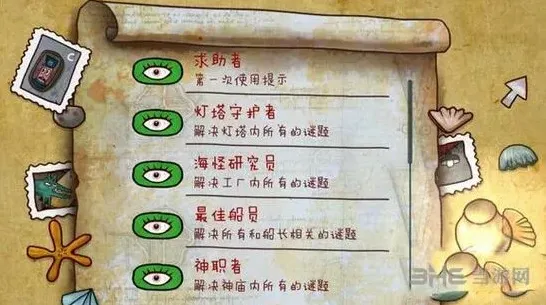 求助者
第一次使用提示
灯塔守护者
解决灯塔内所有的谜题
海怪研究员
解决工厂内所有的谜题
最佳船员
解决所有和船长相关的谜题
神职者
解决神庙内所有的谜题
3HE 当游网